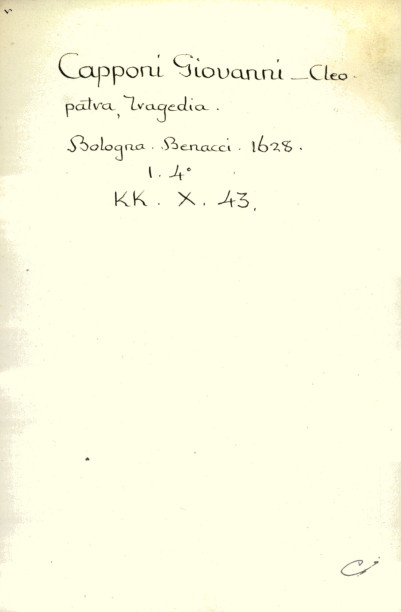 Capponi Giovanni _ Cleo-
patra, Tragedia.
Bologna. Benacci. 1628.
1. 4°
KK. X. 43.